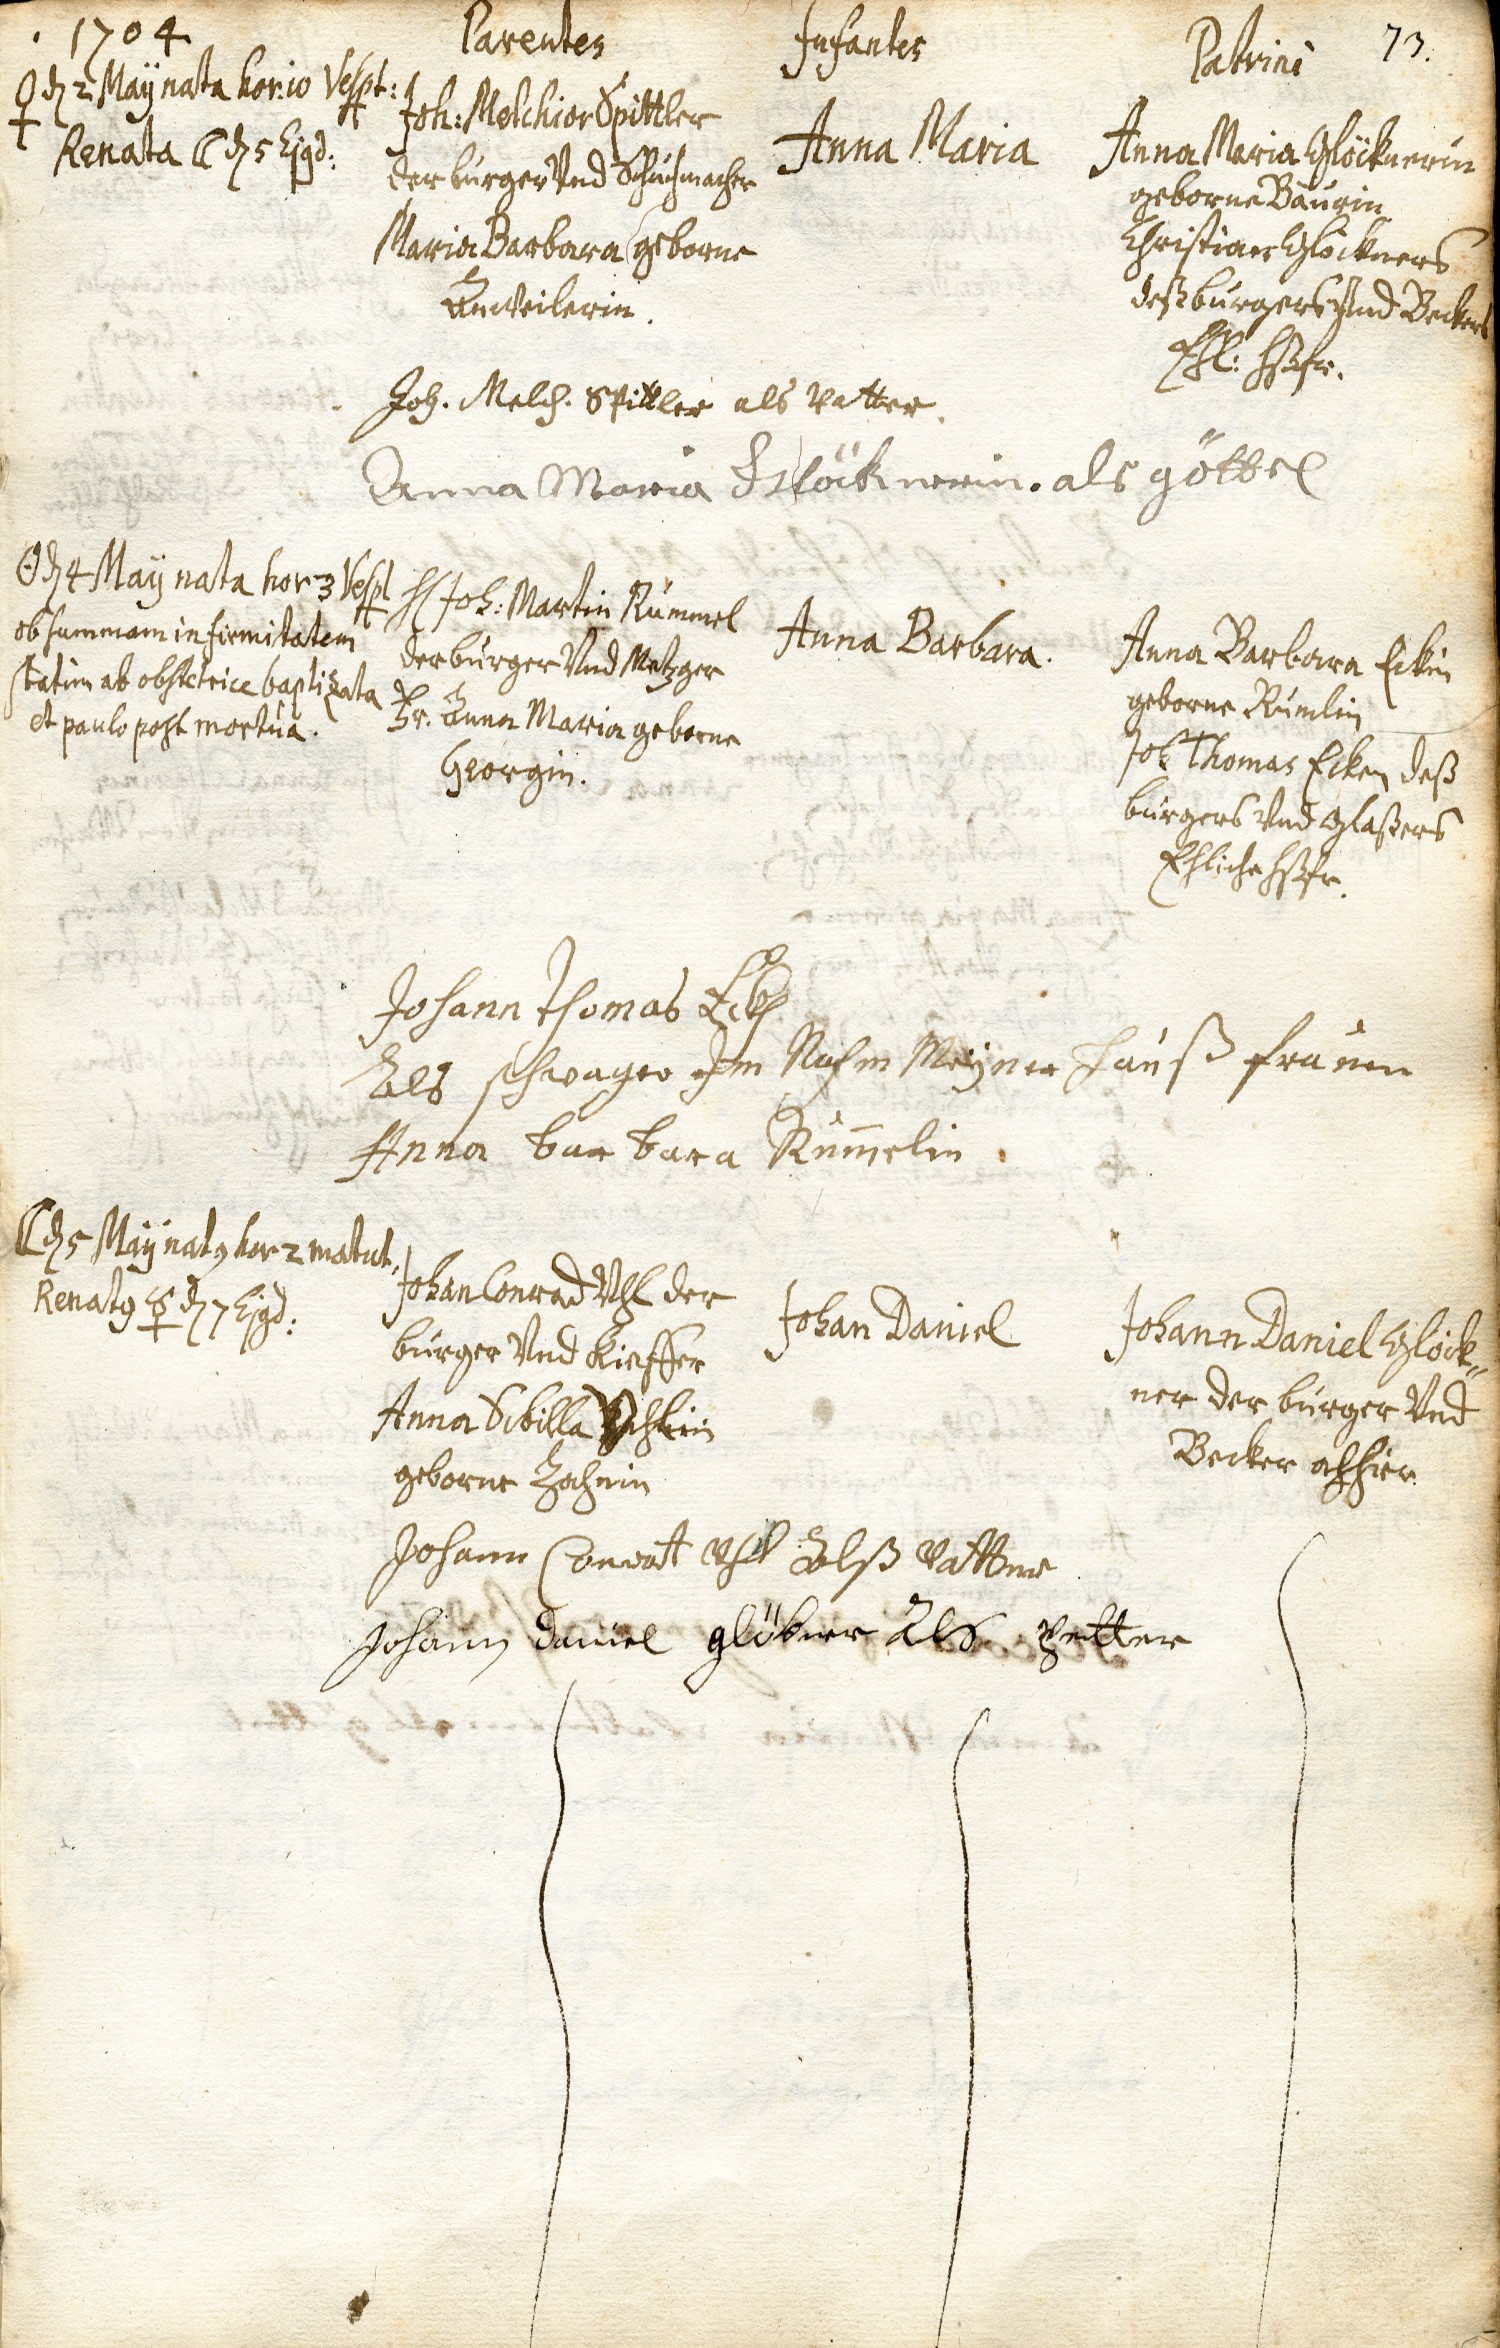 1704
Parentes
Infantes
Patrini
73.
♀ dh 2 Maÿ nata hor: 10 Vespt:
Renata ☾ dh 5 Ejgd:
Joh: Melchior Spittler
der burger Vnd Schuhmacher
Maria Barbara geborne
Anweilerin.
Anna Maria
Anna Maria Glöcknerin
geborne Baurin
Christian Glöckners
deß burgers Vnd Beckers
Ehl: hßfr.
Joh. Melch. Spittler als vatter.
Anna Maria Glöcknerin. als göttel
☉ dh 4 Maÿ nata hor 3 Vespt
ob summam infirmitatem
statim ab obstetrice baptizata
et paulo post mortua.
H Joh: Martin Rümmel
der burger Vnd Metzger
Fr. Anna Maria geborne
Georgin.
Anna Barbara.
Anna Barbara Eckin
geborne Rümlin
Joh Thomas Ecken deß
burgers Vnd Glaßers
Ehliche hßfr.
Johann Thomas Eck
Als schwager Im Nahm Meyner hauß frauen
Anna barbara Rümelin
☾ dh 5 Maÿ natg hor 2 matut.
Renatg ☿ dh 7 Ejgd:
Johan Conrad Vhl der
burger Vnd Kieffer
Anna Sibilla Vhlin
geborne Zahnin
Johan Daniel
Johann Daniel Glöck=
ner der burger Vnd
Becker alhier
Johann Conratt Vhl Alß vatter
Johann Daniel glökner Als petter